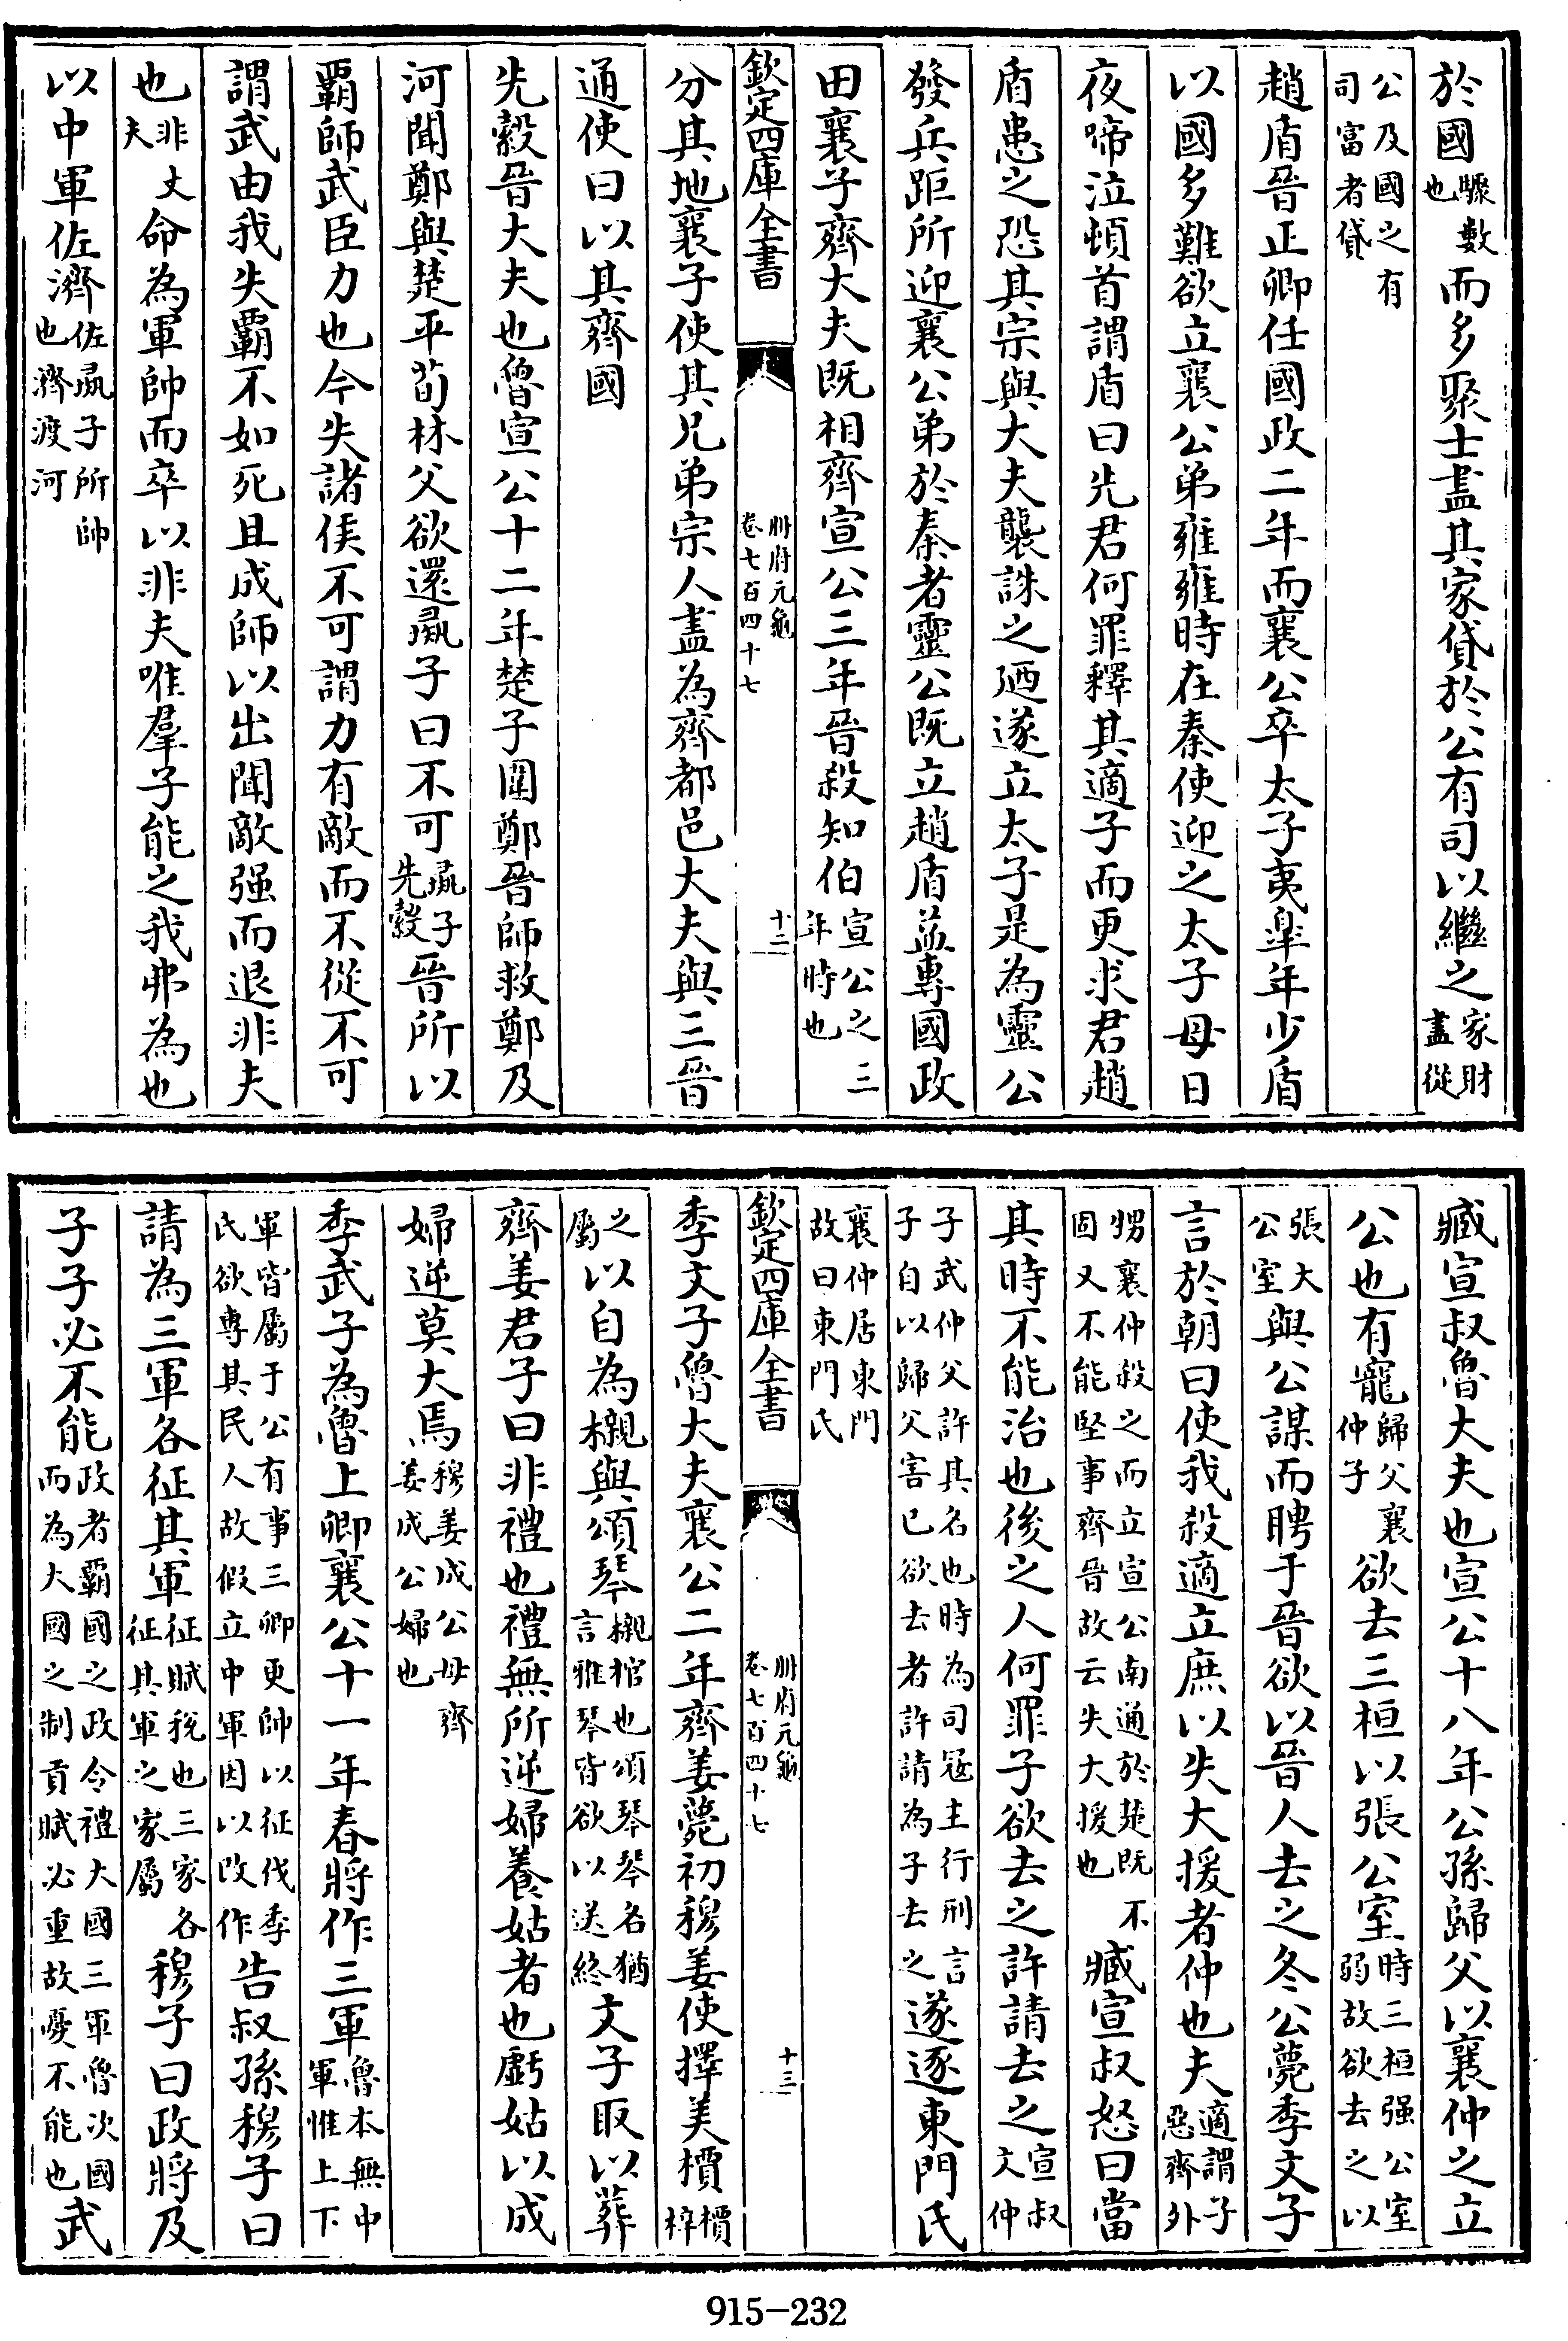 於國驟數也而多聚士盡其家貸於公有司以繼之家財盡從
公及國之有司富者貸
趙盾晉正卿任國政二年而襄公卒太子夷臯年少盾
以國多難欲立襄公弟雍雍時在秦使迎之太子母日
夜啼泣頓首謂盾曰先君何罪釋其適子而更求君趙
盾患之恐其宗與大夫襲誅之廼遂立太子是為靈公
發兵距所迎襄公弟於秦者靈公既立趙盾益專國政
田襄子齊大夫既相齊宣公三年晉殺知伯宣公之三年時也
欽定四庫全書 冊府元龜 卷七百四十七 十二
分其地襄子使其兄弟宗人盡為齊都邑大夫與三晉
通使曰以其齊國
先縠晉大夫也魯宣公十二年楚子圍鄭晉師救鄭及
河聞鄭與楚平荀林父欲還彘子曰不可彘子先縠晉所以
覇師武臣力也今失諸侯不可謂力有敵而不從不可
謂武由我失覇不如死且成師以出聞敵强而退非夫
也非丈夫命為軍帥而卒以非夫唯羣子能之我弗為也
以中軍佐濟佐彘子所帥也濟渡河
臧宣叔魯大夫也宣公十八年公孫歸父以襄仲之立
公也有寵歸父襄仲子欲去三桓以張公室時三桓强公室弱故欲去之以
張大公室與公謀而聘于晉欲以晉人去之冬公薨季文子
言於朝曰使我殺適立庶以失大援者仲也夫適謂子惡齊外
甥襄仲殺之而立宣公南通於楚既不固又不能堅事齊晉故云失大援也臧宣叔怒曰當
其時不能治也後之人何罪子欲去之許請去之宣叔文仲
子武仲父許其名也時為司寇主行刑言子自以歸父害已欲去者許請為子去之遂逐東門氏
襄仲居東門故曰東門氏
欽定四庫全書 冊府元龜 卷七百四十七 十三
季文子魯大夫襄公二年齊姜薨初穆姜使擇美檟檟梓
之屬以自為櫬與頌琴櫬棺也頌琴琴名猶言雅琴皆欲以送終文子取以葬
齊姜君子曰非禮也禮無所逆婦養姑者也虧姑以成
婦逆莫大焉穆姜成公母齊姜成公婦也
季武子為魯上卿襄公十一年春將作三軍魯本無中軍惟上下
軍皆屬于公有事三卿更帥以征伐季氏欲專其民人故假立中軍因以改作告叔孫穆子曰
請為三軍各征其軍征賦稅也三家各征其軍之家屬穆子曰政將及
子子必不能政者覇國之政令禮大國三軍魯次國而為大國之制貢賦必重故憂不能也武
915-232